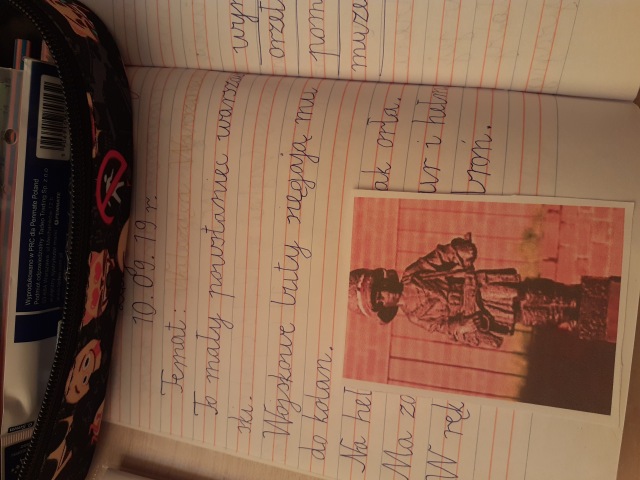 10. 09. 19 r.
Temat:
To mały powstaniec warsza
ski.
Wojskowe buty sięgają mu
do kolan.
Na heł ak orła.
Ma za ur i hełm
W ręk broń.
wyr
orzeł
pom
muze
Wyprodukowano w PRC dla Penmate Poland